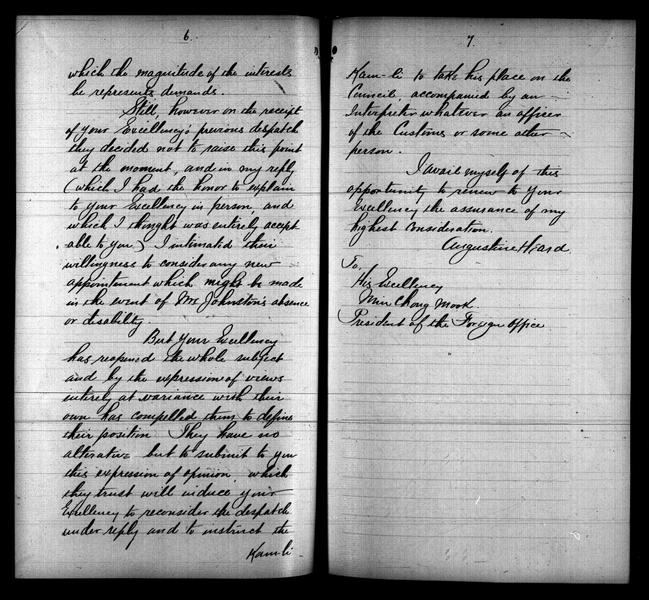 6.
which the magnitude of the interests
he represents demands.
Still, however on the receipt
of your Excellency's previous despatch
they decided not to raise this point
at the moment, and in my reply
(which I had the honor to explain
to your Excellency in person and
which I thought was entirely accept
able to you) I intimated their
willingness to consider any new
appointment which might be made
in the event of Mr Johnston's absence
or disability.
But Your Excellency
has reopened the whole subject
and by the expression of views
entirely at variance with their
own has compelled them to define
their position. They have no
alternative but to submit to you
this expression of opinion which
they trust will induce your
Excellency to reconsider the despatch
under reply and to instruct the
Kam-li
7.
Kam-li to take his place on the
Council, accompanied by an
Interpreter whatever an officer
of the Customs or some other
person.
I avail myself of this
opportunity to renew to Your
Excellency the assurance of my
highest consideration.
Augustine Heard
To,
His Excellency
Min Chong Mook
President of the Foreign Office